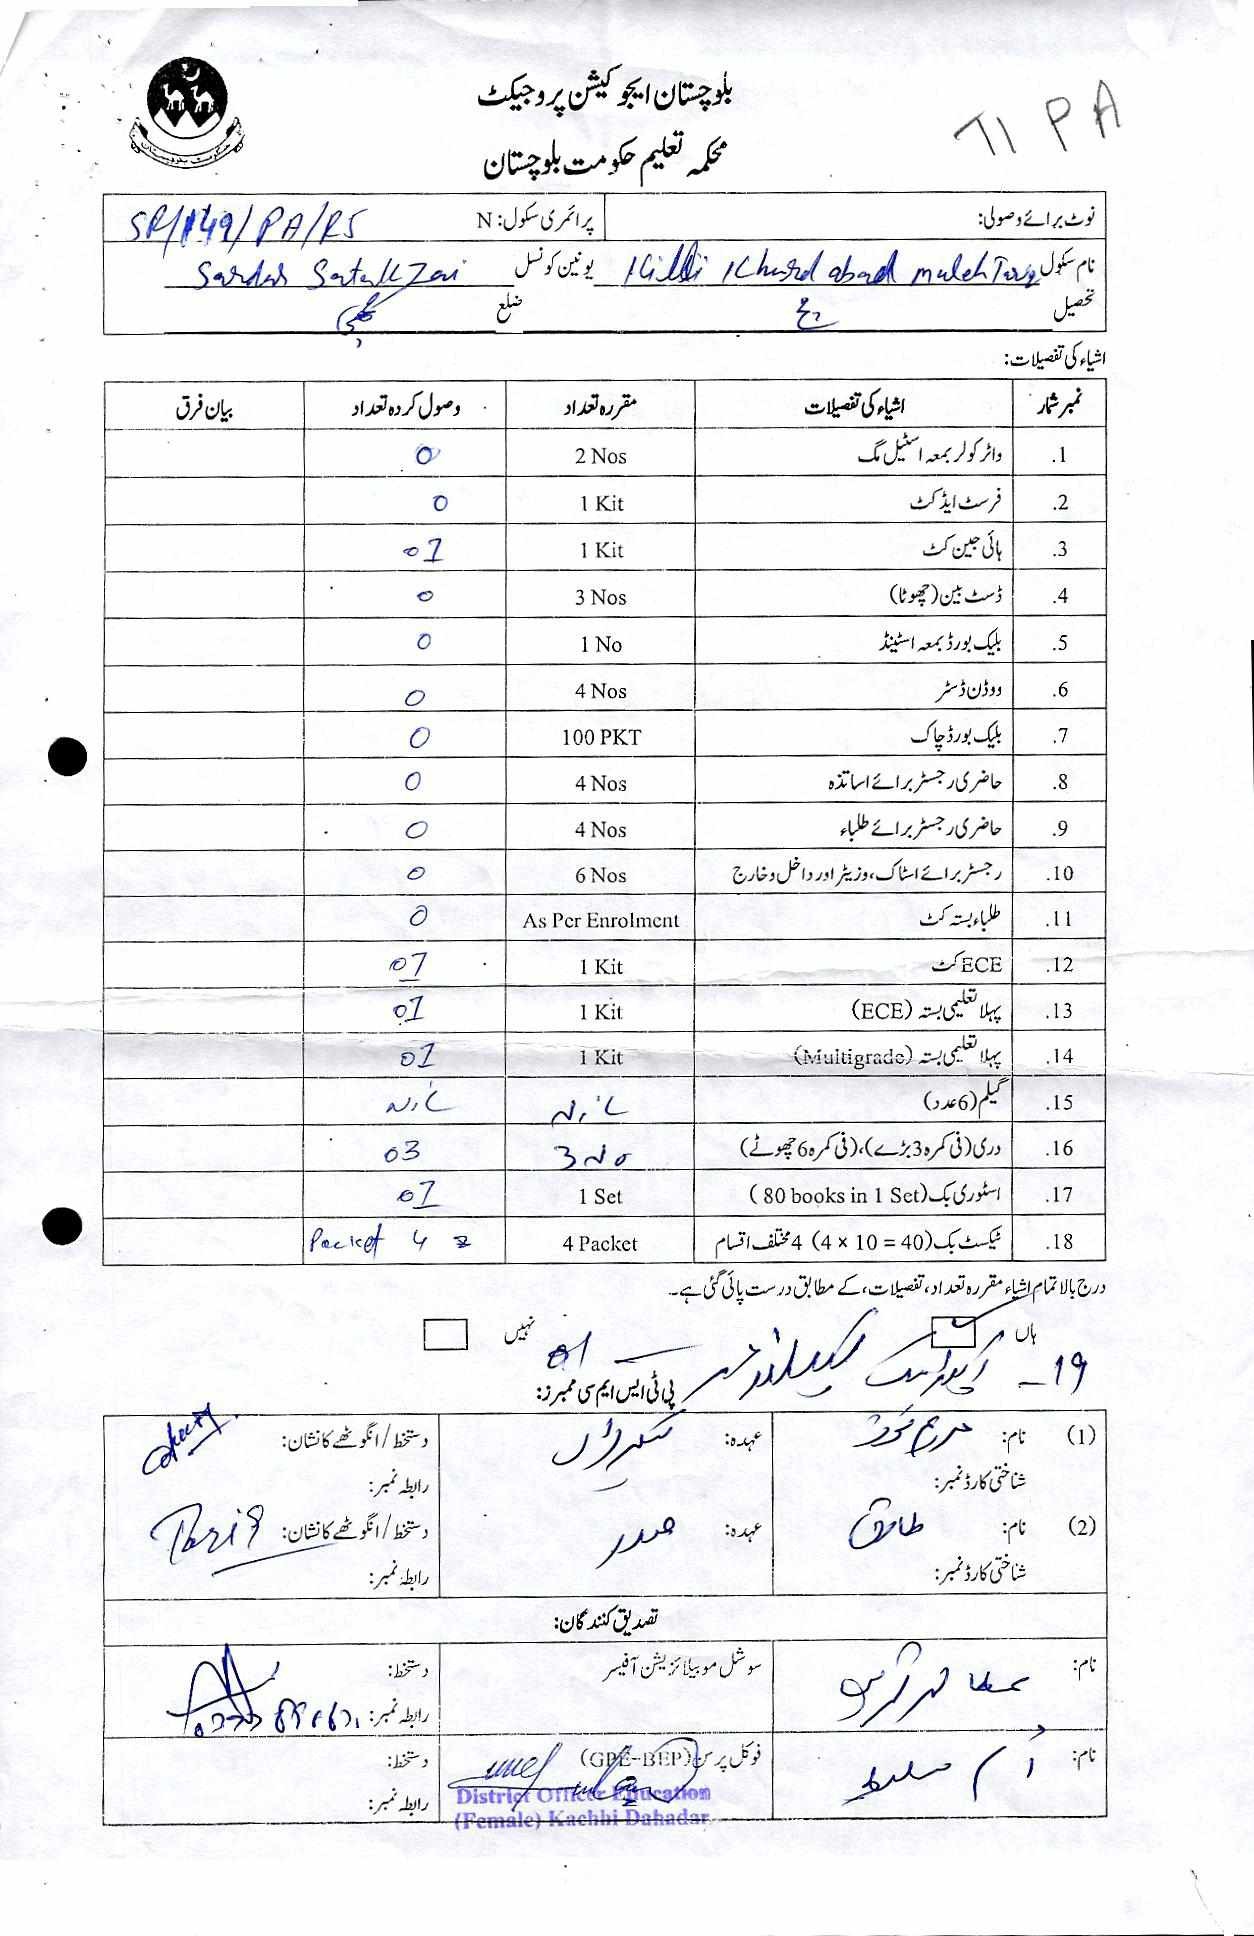 بلوچستان ایجوکیشن پروجیکٹ
محکمہ تعلیم حکومت بلوچستان
TI PA
نوٹ برائے وصولی: پرائمری سکول: N SR/149/PA/RS
نام سکول Killi Khurd abad Malek Tariq یونین کونسل Sardar Satakzai
تحصیل ضلع
اشیاء کی تفصیلات:
نمبر شمار اشیاء کی تفصیلات مقررہ تعداد وصول کردہ تعداد بیان فرق
1. واٹر کولر بمعہ اسٹیل مگ 2 Nos 0
2. فرسٹ ایڈ کٹ 1 Kit 0
3. ہائی جین کٹ 1 Kit 01
4. ڈسٹ بین (چھوٹا) 3 Nos 0
5. بلیک بورڈ بمعہ اسٹینڈ 1 No 0
6. ووڈن ڈسٹر 4 Nos 0
7. بلیک بورڈ چاک 100 PKT 0
8. حاضری رجسٹر برائے اساتذہ 4 Nos 0
9. حاضری رجسٹر برائے طلباء 4 Nos 0
10. رجسٹر برائے اسٹاک، وزیٹر اور داخل و خارج 6 Nos 0
11. طلباء بستہ کٹ As Per Enrolment 0
12. ECE کٹ 1 Kit 01
13. پہلا تعلیمی بستہ (ECE) 1 Kit 01
14. پہلا تعلیمی بستہ (Multigrade) 1 Kit 01
15. گیلم (6 عدد) Nil Nil
16. دری (فی کمرہ 3 بڑے)، (فی کمرہ 6 چھوٹے) 3 No 03
17. اسٹوری بک (80 books in 1 Set) 1 Set 01
18. ٹیکسٹ بک (4 x 10 = 40) 4 مختلف اقسام 4 Packet Packet 4
درج بالا تمام اشیاء مقررہ تعداد، تفصیلات، کے مطابق درست پائی گئی ہے۔
ہاں نہیں
19- 01
پی ٹی ایس ایم سی ممبرز:
(1) نام: عہدہ: دستخط/انگوٹھے کا نشان:
شناختی کارڈ نمبر: رابطہ نمبر:
(2) نام: طارق عہدہ: صدر دستخط/انگوٹھے کا نشان: Tariq
شناختی کارڈ نمبر: رابطہ نمبر:
تصدیق کنندگان:
نام: سوشل موبیلائزیشن آفیسر دستخط:
رابطہ نمبر:
نام: فوکل پرسن (GPE-BEP) دستخط:
رابطہ نمبر:
District Officer Education
(Female) Kachhi Dahadar